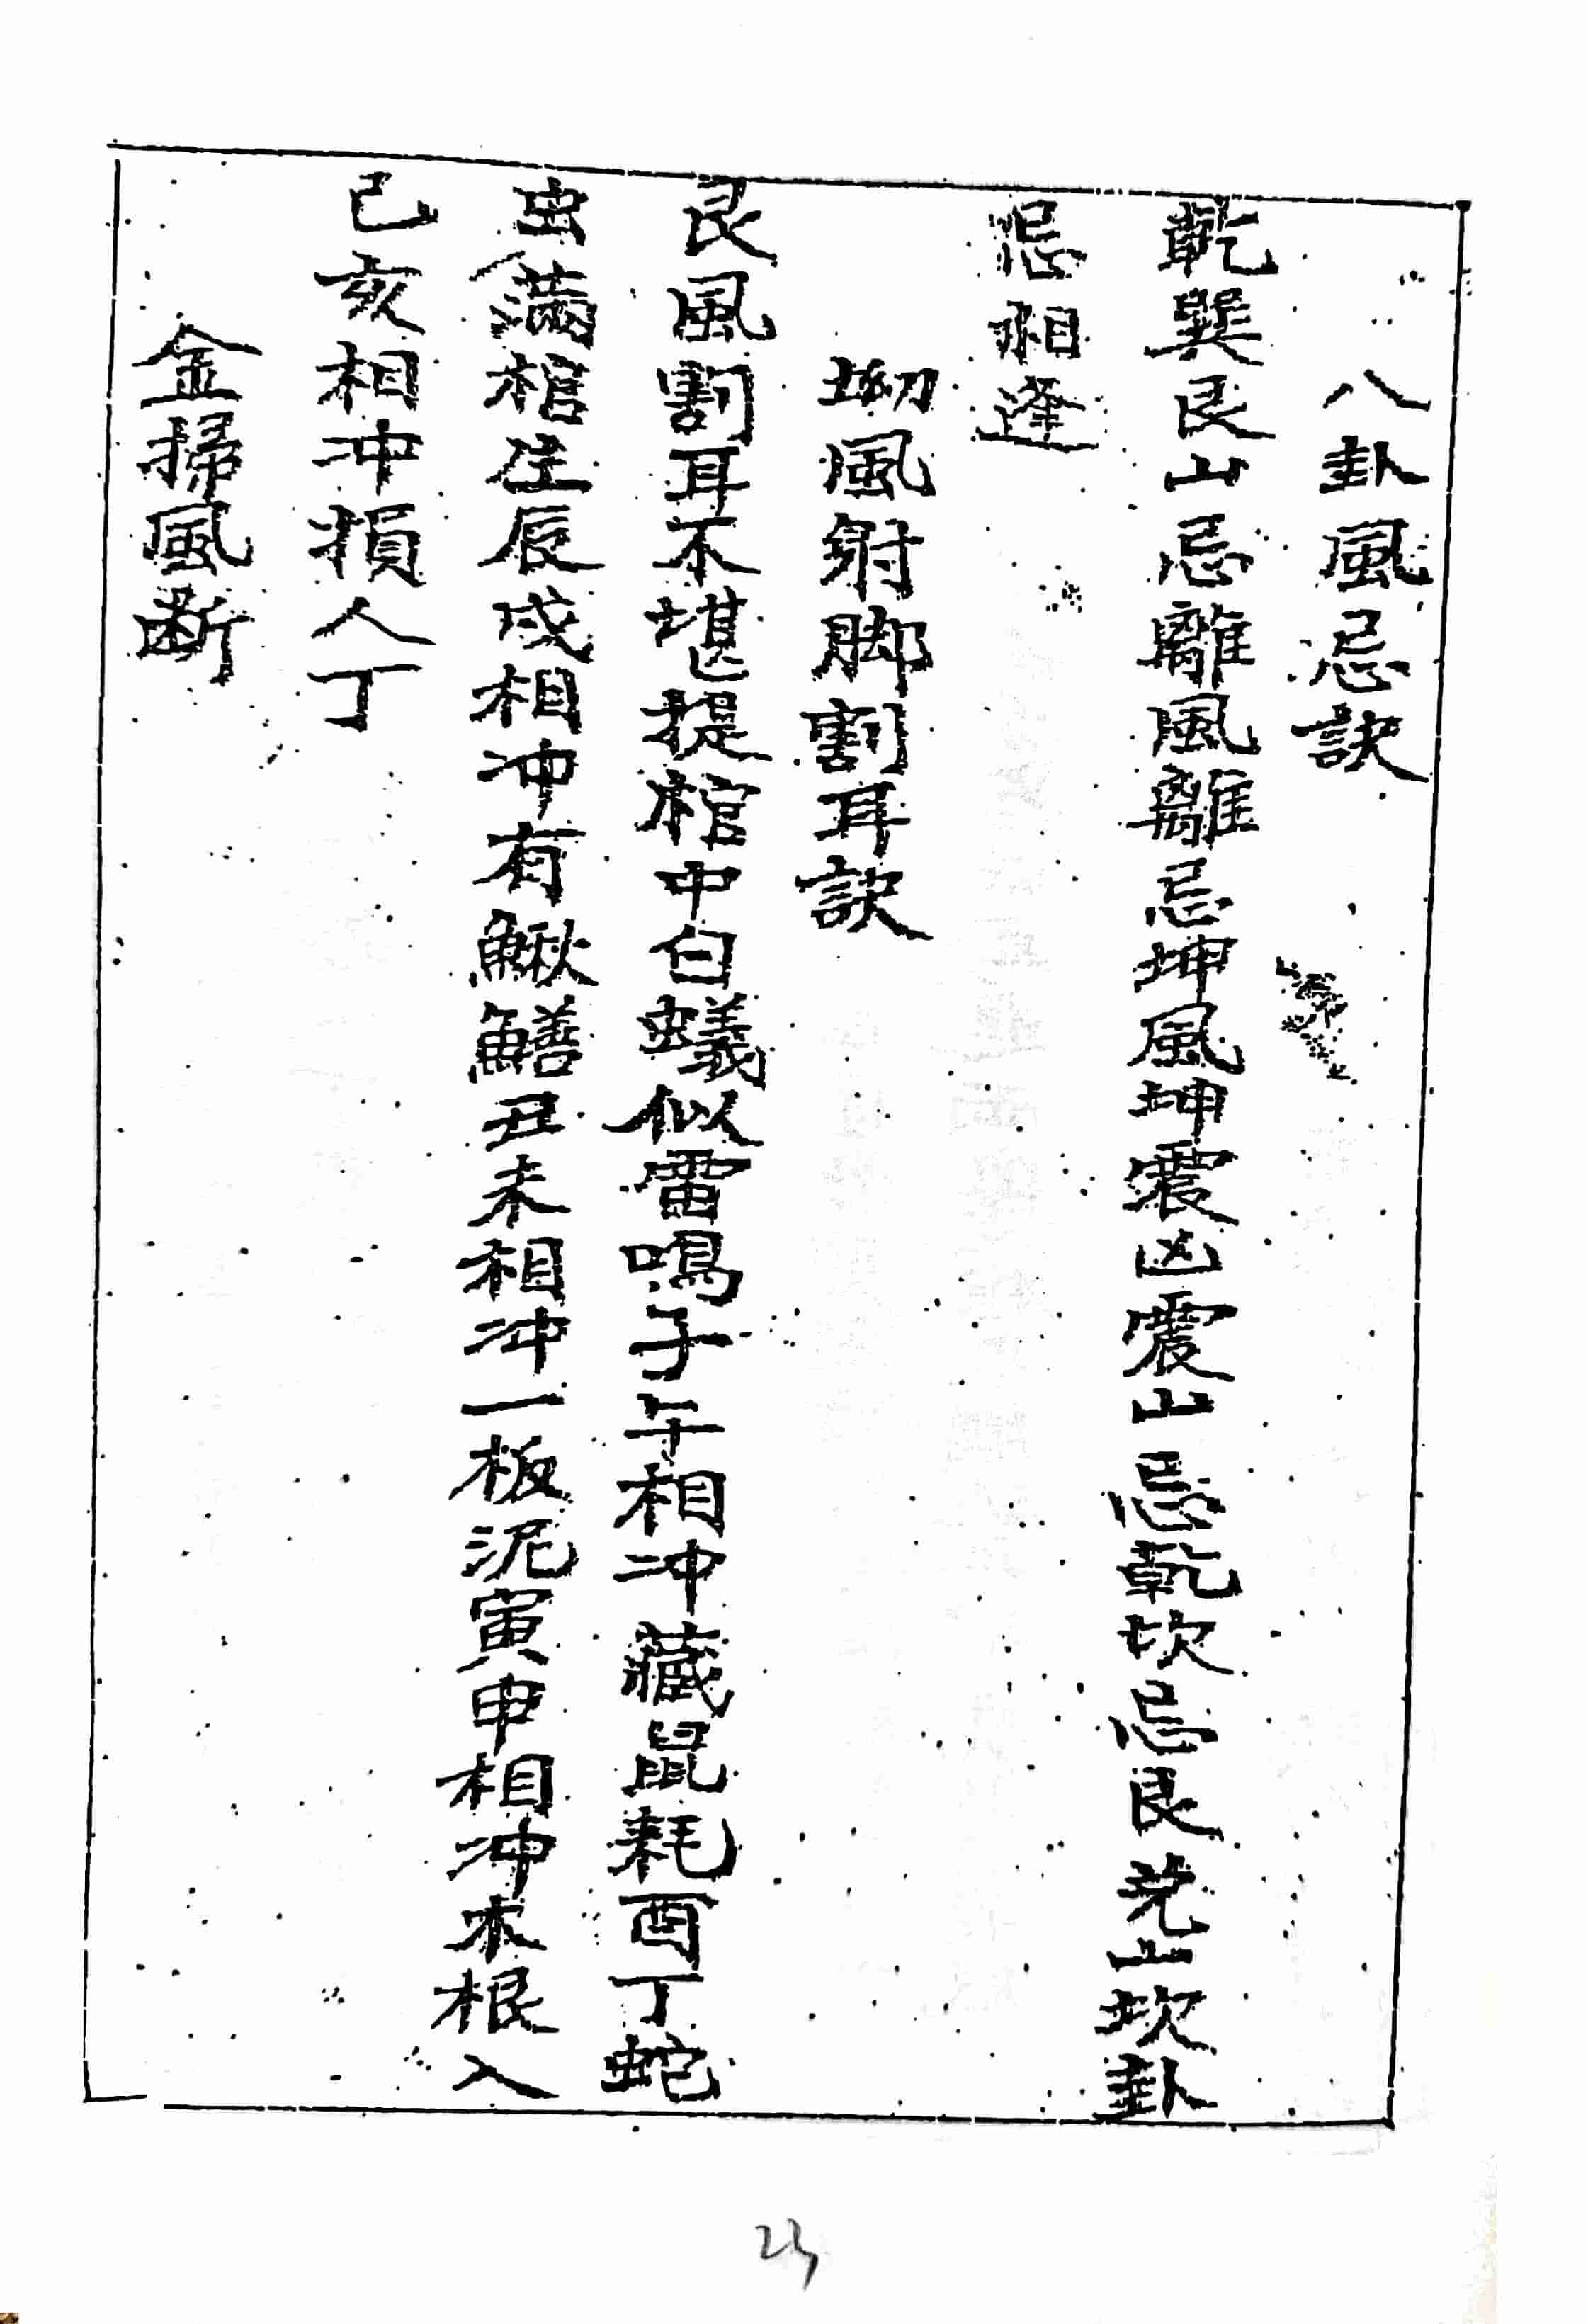 八卦風忌訣
乾巽艮山忌離風離忌坤風坤震凶震山忌乾坎忌艮兌山坎卦
忌相逢
坳風射脚割耳訣
艮風割耳不堪提棺中白蟻似雷鳴子午相冲藏鼠耗酉丁蛇
虫滿棺生辰戌相冲有鰍鱔丑未相冲一板泥寅申相冲木根入
己亥相冲損人丁
金掃風斷
23